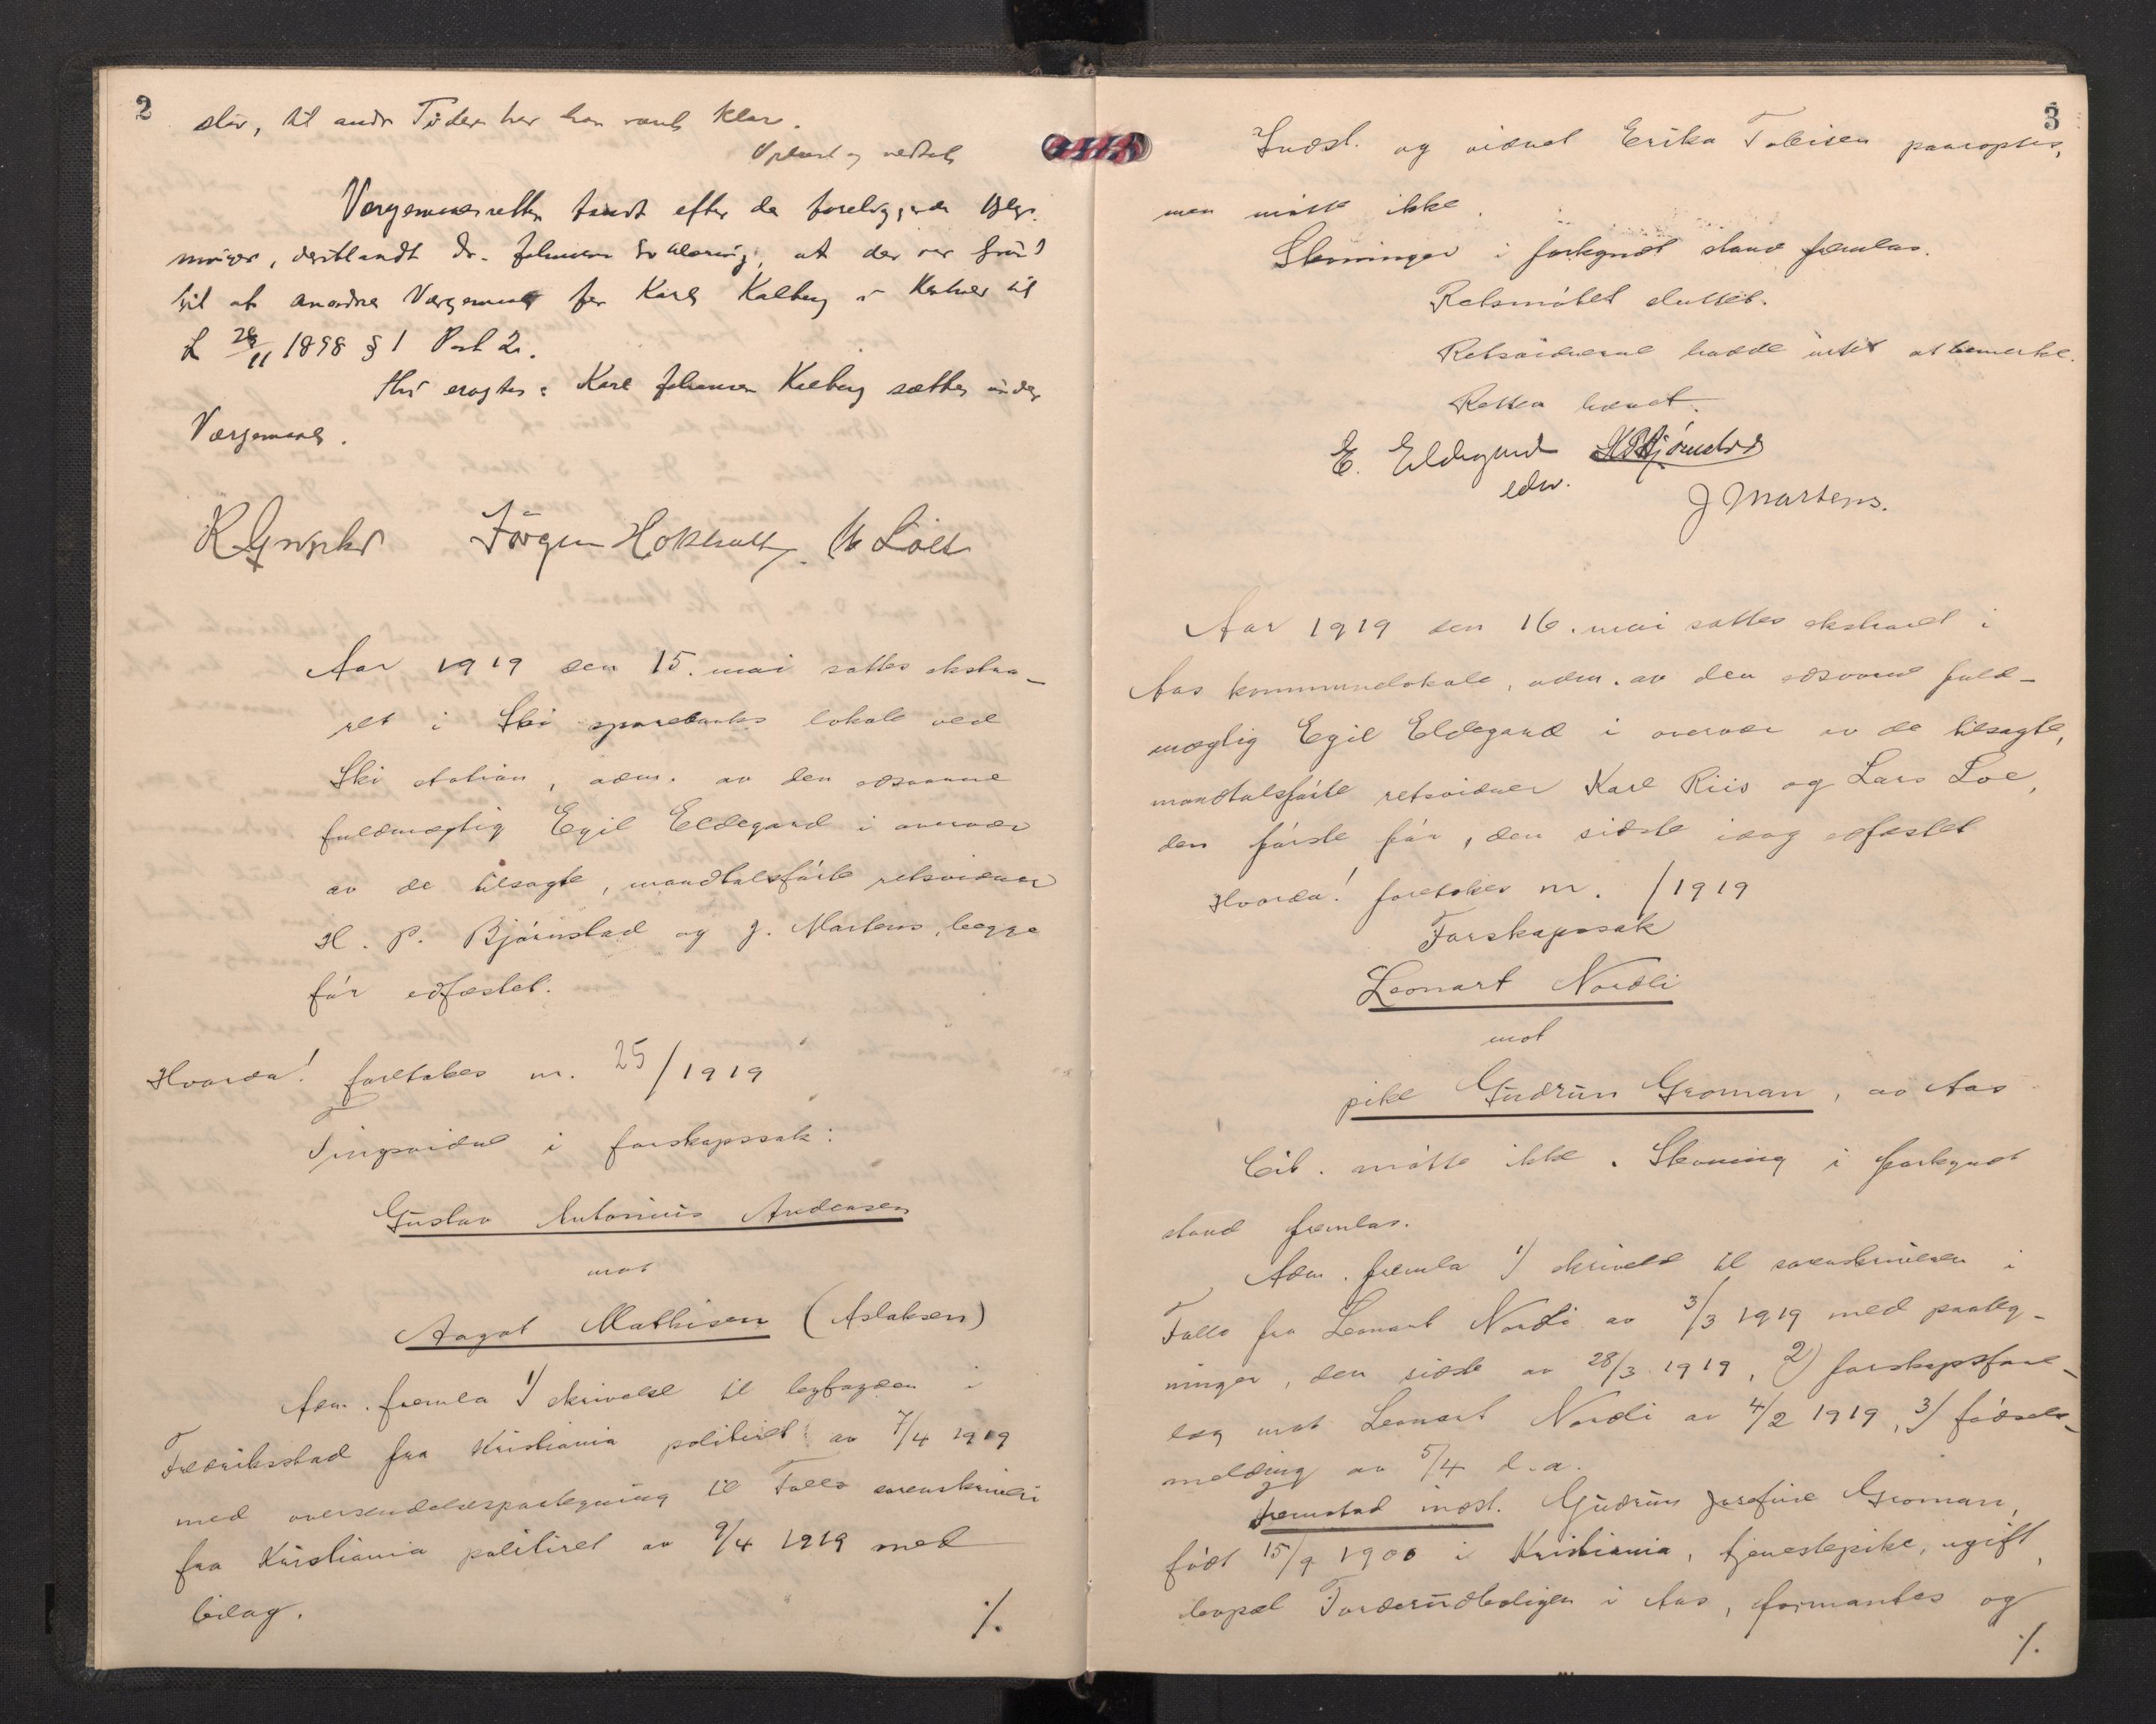 2
slöv, til andre Tider har han været klar.
Oplæst og vedtat
Vergemaalsretten fandt efter de foreliggende Oplys-
ninger, deriblandt Dr. Johnsens Erklæring, at der var Grund
til at anordne Værgemaal for Karl Kalberg i Henhold til
L 28/11 1898 § 1 Post 2.
Thi eragtes: Karl Johansen Kalberg sættes under
Værgemaal.
Jörgen Hokholt.
Aar 1919 den 15. mai sattes ekstra-
ret i Ski sparebanks lokale ved
Ski station, adm. av den edsvorne
fuldmægtig Egil Eldegard i overvær
av de tilsagte, mandtalsførte retsvidner
H. P. Bjørnstad og J. Martens, begge
før edfæstet.
Hvorda! foretokes nr. 25/1919
Tingsvidne i farskapssak:
Gustav Antonius Andensen
mot
Aagot Mathisen (Aslaksen)
Adm. fremla 1) skrivelse til byfogden i
Fredriksstad fra Kristiania politiret av 7/4 1919
med oversendelsespaategning til Follo sorenskriveri
fra Kristiania politiret av 9/4 1919 med
bilag.
./.
3
Indst. og vidnet Erika Tobisen paaroptes,
men møtte ikke.
Stevninger i forkyndt stand fremlas.
Retsmøtet sluttet.
Retsvidnerne hadde intet at bemerke.
Retten hævet.
E. Eldegard HPBjörnstad
edsv.
J Martens.
Aar 1919 den 16. mai sattes ekstraret i
Aas kommunelokale, adm. av den edsvorne fuld-
mægtig Egil Eldegard i overvær av de tilsagte,
mandtalsførte retsvidner Karl Riis og Lars Loe,
den første før, den sidste idag edfæstet
Hvorda! foretokes nr. /1919
Farskapssak
Leonart Nordli
mot
pike Gudrun Groman, av Aas
Cit. møtte ikke. Stevning i forkyndt
stand fremlas.
Adm. fremla 1) skrivelse til sorenskriveren i
Follo fra Leonart Nordli av 3/3 1919 med paateg-
ninger, den sidste av 28/3 1919, 2) farskapsfore-
læg mot Leonart Nordli av 4/2 1919, 3) fødsels-
melding av 5/4 d.a.
Fremstod indst. Gudrun Josefine Groman,
født 15/9 1900 i Kristiania, tjenestepike, ugift,
bopæl Forderudboligen i Aas, formantes og
./.